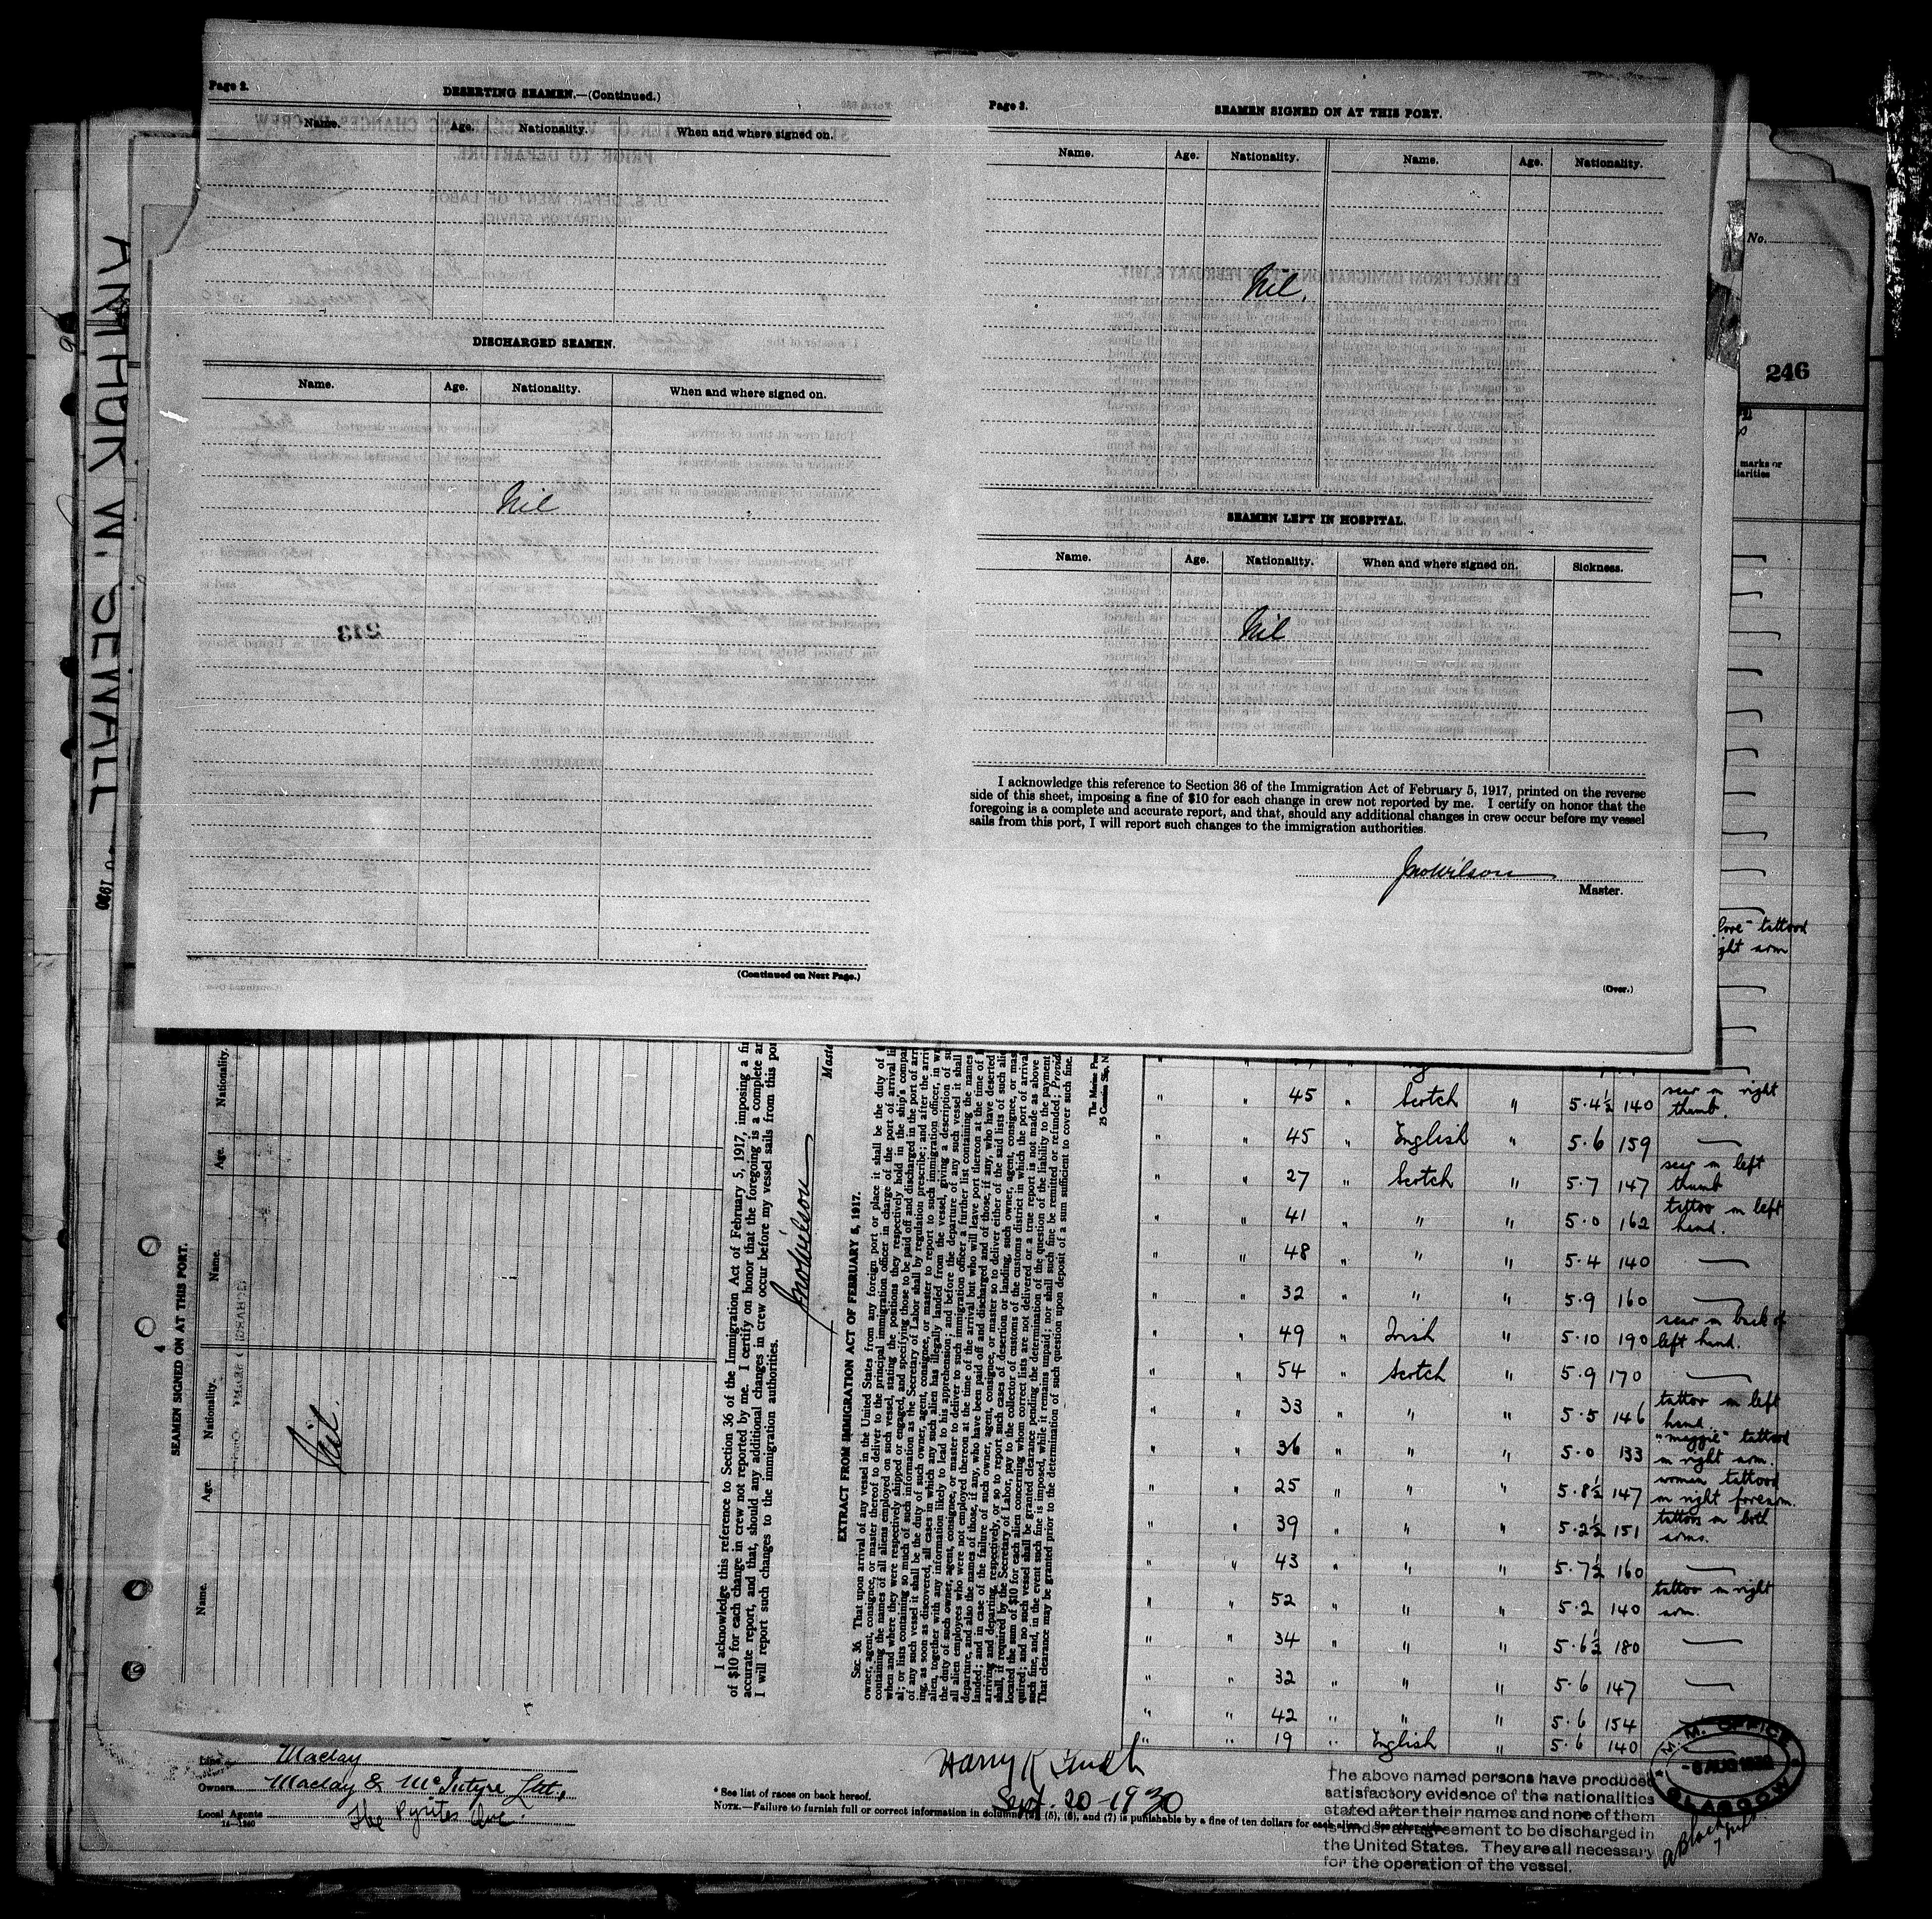 Page 2.
DESERTING SEAMEN.—(Continued.)
Name. Age. Nationality. When and where signed on.
DISCHARGED SEAMEN.
Name. Age. Nationality. When and where signed on.
Nil
213
(Continued on Next Page.)
Page 3.
SEAMEN SIGNED ON AT THIS PORT.
Name. Age. Nationality. Name. Age. Nationality.
Nil.
SEAMEN LEFT IN HOSPITAL.
Name. Age. Nationality. When and where signed on. Sickness.
Nil
I acknowledge this reference to Section 36 of the Immigration Act of February 5, 1917, printed on the reverse
side of this sheet, imposing a fine of $10 for each change in crew not reported by me. I certify on honor that the
foregoing is a complete and accurate report, and that, should any additional changes in crew occur before my vessel
sails from this port, I will report such changes to the immigration authorities.
Jno Wilson
Master.
(Over.)
No.
246
marks or
tattood
right arm
W. SEWALL
1930
4
SEAMEN SIGNED ON AT THIS PORT.
Name. Age. Nationality. Name. Age. Nationality.
Nil.
I acknowledge this reference to Section 36 of the Immigration Act of February 5, 1917, imposing a
of $10 for each change in crew not reported by me. I certify on honor that the foregoing is a complete
accurate report, and that, should any additional changes in crew occur before my vessel sails from this
I will report such changes to the immigration authorities.
Jno Wilson
EXTRACT FROM IMMIGRATION ACT OF FEBRUARY 5, 1917.
SEC. 36. That upon arrival of any vessel in the United States from any foreign port or place it shall be the duty of
owner, agent, consignee, or master thereof to deliver to the principal immigration officer in charge of the port of arrival
containing the names of all aliens employed on such vessel, stating the positions they respectively hold in the ship's
when and where they were respectively shipped or engaged, and specifying those to be paid off and discharged in the port of
or lists containing so much of such information as the Secretary of Labor shall by regulation prescribe; and after the
of any such vessel it shall be the duty of such owner, agent, consignee, or master to report to such immigration officer, in
as soon as discovered, all cases in which any such alien has illegally landed from the vessel, giving a description of
alien, together with any information likely to lead to his apprehension; and before the departure of any such vessel it shall
the duty of such owner, agent, consignee, or master to deliver to such immigration officer a further list containing the names
all alien employees who were not employed thereon at the time of the arrival but who will leave port thereon at the time of
departure, and also the names of those, if any, who have been paid off and discharged and of those, if any, who have deserted
landed; and in case of the failure of such owner, agent, consignee, or master so to deliver either of the said lists of such
arriving and departing, respectively, or so to report such cases of desertion or landing, such owner, agent, consignee, or
shall, if required by the Secretary of Labor, pay to the collector of customs of the customs district in which the port of arrival
located the sum of $10 for each alien concerning whom correct lists are not delivered or a true report is not made as above
and no such vessel shall be granted clearance pending the determination of the question of the liability to the payment
such fine, and, in the event such fine is imposed, while it remains unpaid; nor shall such fine be remitted or refunded;
That clearance may be granted prior to the determination of such question upon deposit of a sum sufficient to cover such fine.
" " 45 " Scotch " 5.4½ 140 scar on right thumb.
" " 45 " English " 5.6 159 —
" " 27 " Scotch " 5.7 147 scar on left thumb
" " 41 " " " 5.0 162 tattoo on left hand.
" " 48 " " " 5.4 140 —
" " 32 " " " 5.9 160 —
" " 49 " Irish " 5.10 190 scar on back of left hand.
" " 54 " Scotch " 5.9 170 —
" " 33 " " " 5.5 146 tattoo on left hand.
" " 36 " " " 5.0 133 "maggie" tattood on right arm.
" " 25 " " " 5.8½ 147 women tattood on right forearm.
" " 39 " " " 5.2½ 151 tattoos on both arms.
" " 43 " " " 5.7½ 160 —
" " 52 " " " 5.2 140 tattoo on right arm.
" " 34 " " " 5.6½ 180 —
" " 32 " " " 5.6 147 —
" " 42 " " " 5.6 154
" " 19 " English " 5.6 140
Line Maclay
Owners Maclay & McIntyre Ltd.,
Local Agents The Pyrites
14—1240
* See list of races on back hereof.
Harry R
Sept. 20-1930
NOTE.—Failure to furnish full or correct information in columns (5), (6), and (7) is punishable by a fine of ten dollars for each alien.
The above named persons have produced
satisfactory evidence of the nationalities
stated after their names and none of them
is under an agreement to be discharged in
the United States. They are all necessary
for the operation of the vessel.
M. M. OFFICE
GLASGOW